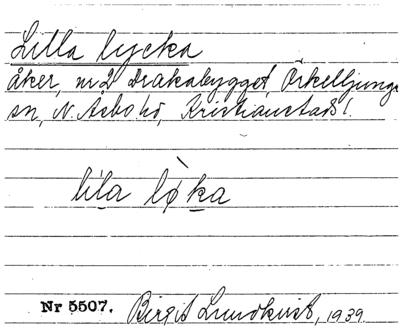 Lilla lycka
åker, nr 2 Drakabygget, Örkelljunga
sn, N. Åsbo hd, Kristianstads l.
lìla lø̀ka
Nr 5507. Birgit Lundkvist, 1939.